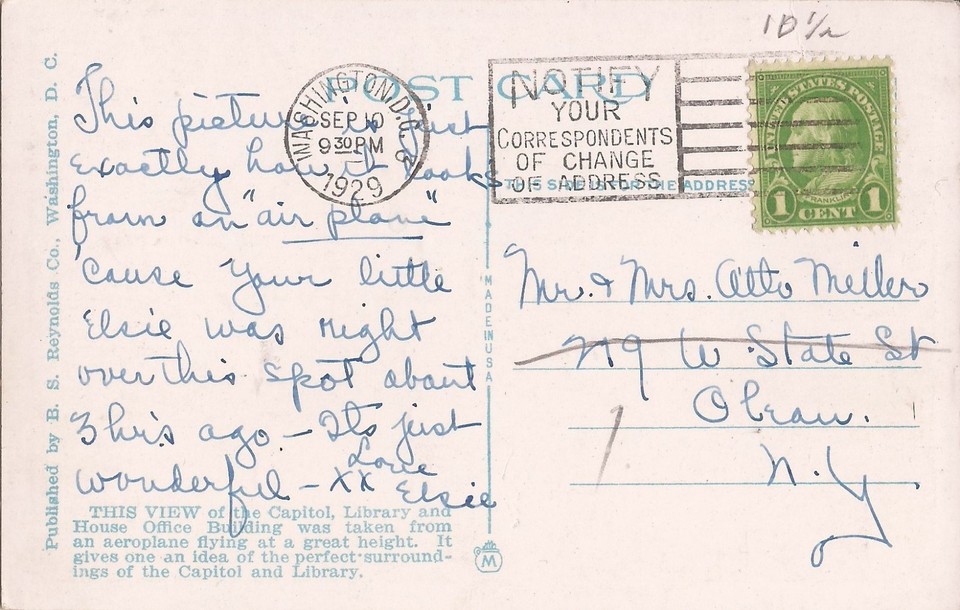 10 1/2
POST CARD
WASHINGTON, D.C.
SEP 10
9 30 PM
1929
NOTIFY
YOUR
CORRESPONDENTS
OF CHANGE
OF ADDRESS
THIS SIDE IS FOR THE ADDRESS
UNITED STATES POSTAGE
FRANKLIN
1 CENT 1
This picture is just
exactly how it looks
from an "air plane"
'cause your little
Elsie was right
over this spot about
3 hrs ago – Its just
wonderful – xx Love
Elsie
Mr. & Mrs. Otto Miller
W. State St
Olean.
N.Y.
MADE IN USA
THIS VIEW of the Capitol, Library and
House Office Building was taken from
an aeroplane flying at a great height. It
gives one an idea of the perfect surround-
ings of the Capitol and Library.
M
Published by B. S. Reynolds Co., Washington, D. C.